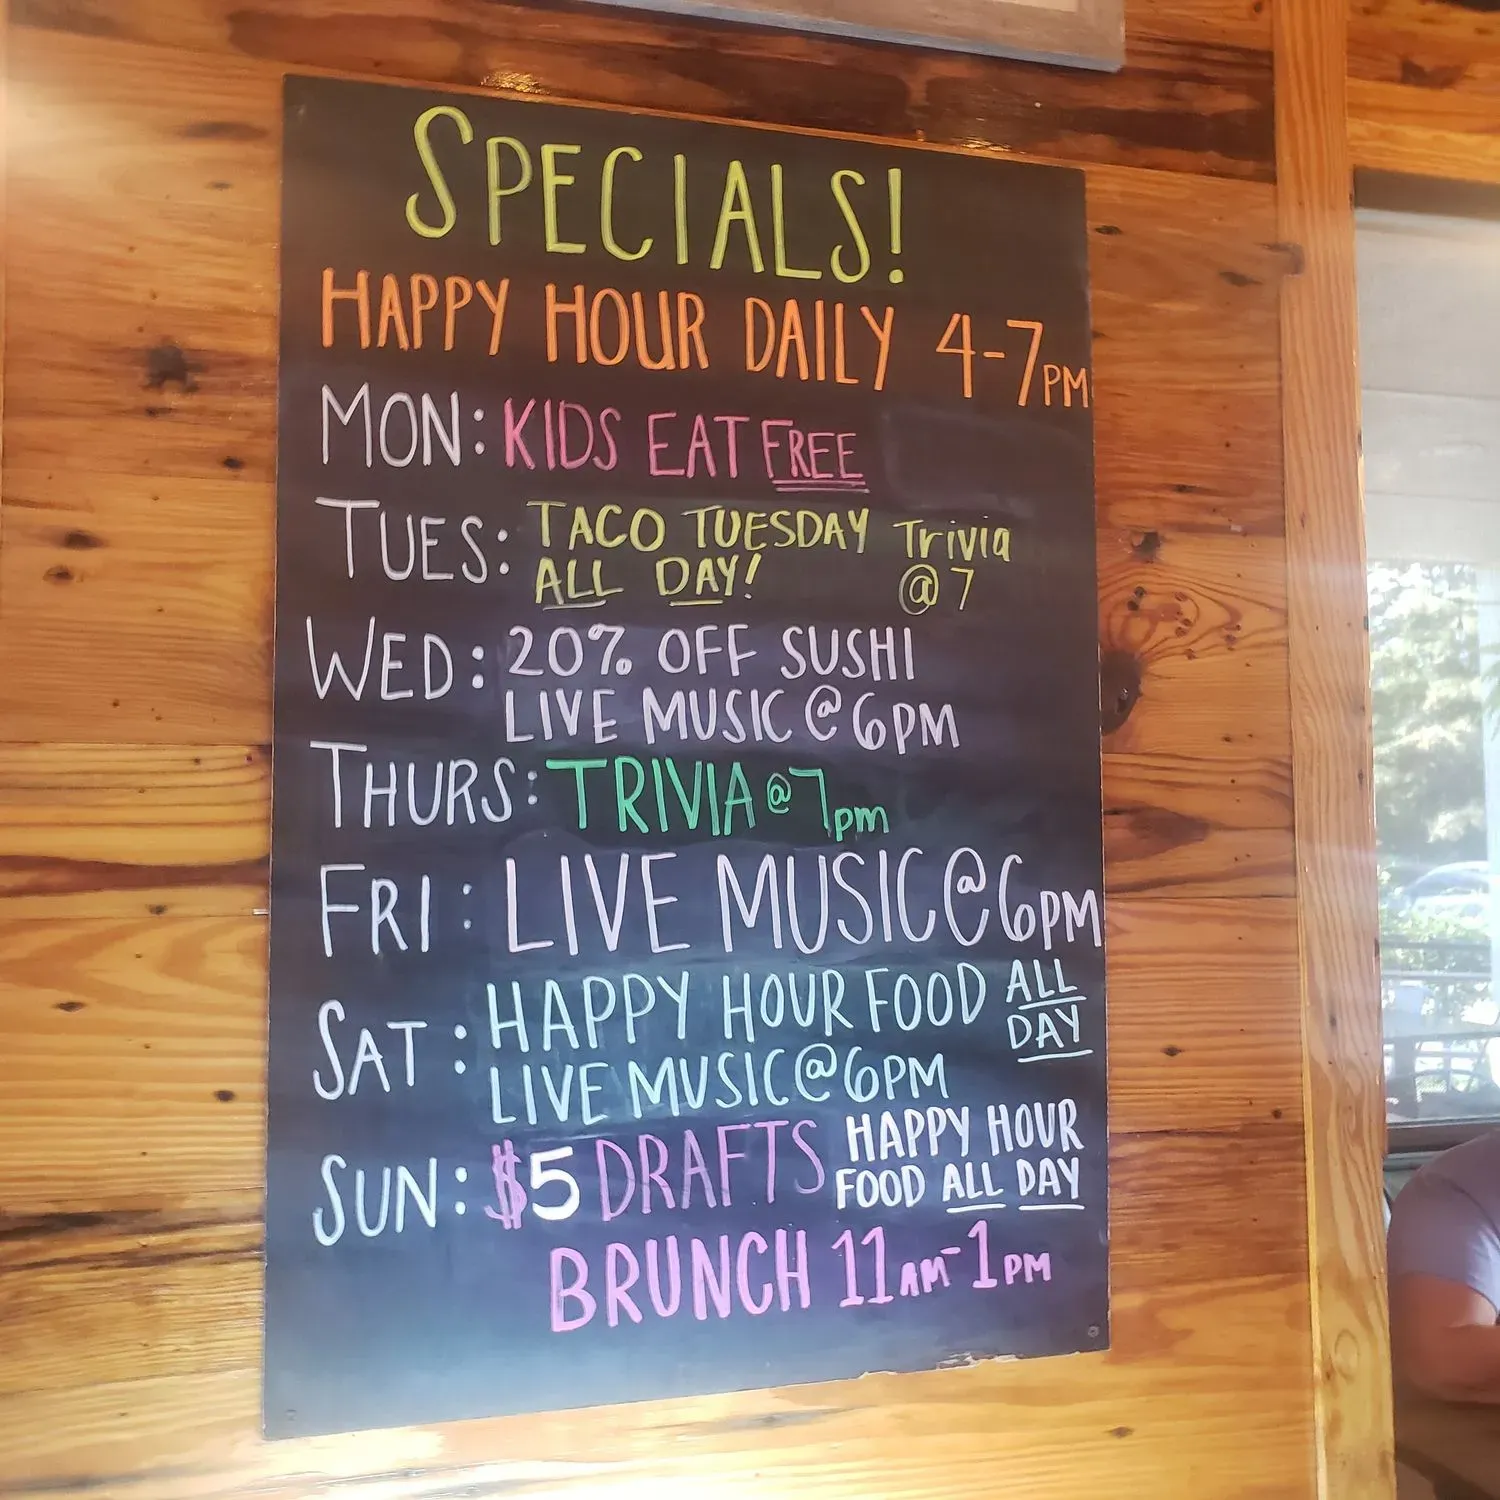 SPECIALS!
HAPPY HOUR DAILY 4-7PM
MON: KIDS EAT FREE
TUES: TACO TUESDAY Trivia
ALL DAY! @ 7
WED: 20% OFF SUSHI
LIVE MUSIC @ 6PM
THURS: TRIVIA @ 7pm
FRI: LIVE MUSIC @ 6PM
SAT: HAPPY HOUR FOOD ALL DAY
LIVE MUSIC @ 6PM
SUN: $5 DRAFTS HAPPY HOUR
FOOD ALL DAY
BRUNCH 11AM-1PM